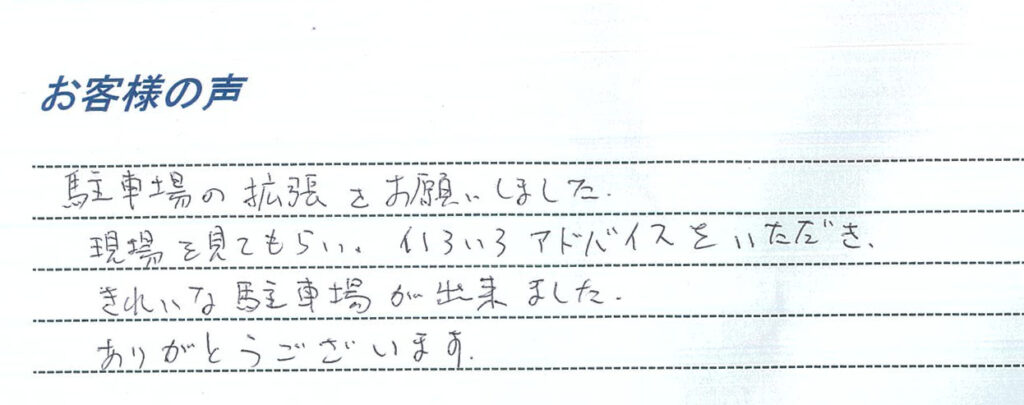 お客様の声
駐車場の拡張をお願いしました.
現場を見てもらい。いろいろアドバイスをいただき、
きれいな駐車場が出来ました.
ありがとうございます.